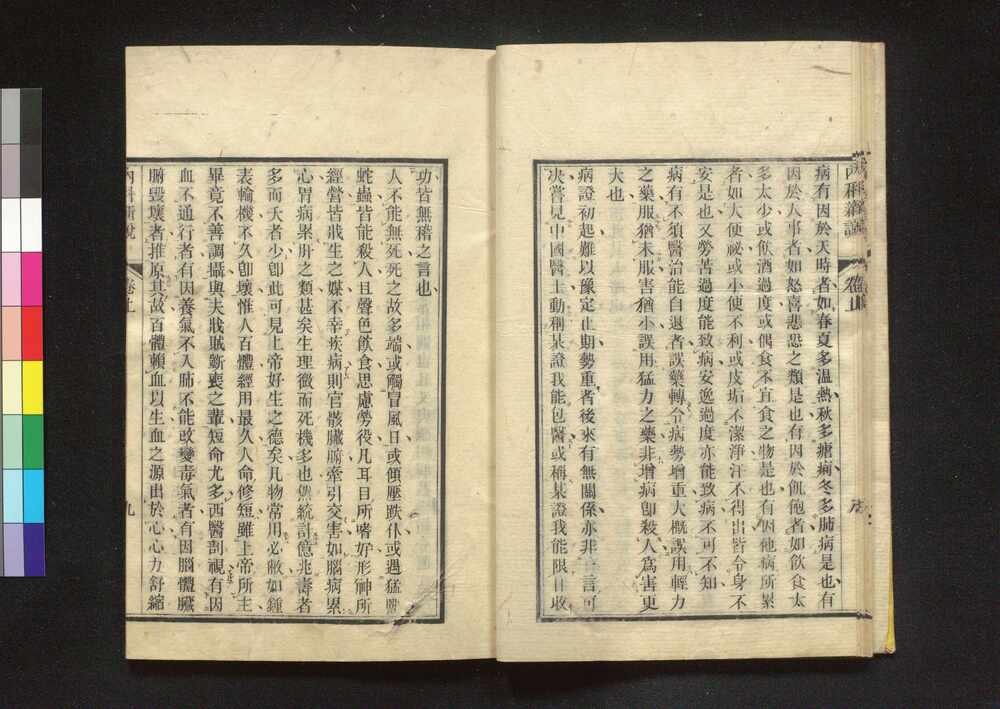 內科新說 卷上
病有因於天時者如春夏多温熱秋多瘧痢冬多肺病是也有
因於人事者如怒喜悲恐之類是也有因於飢飽者如飲食太
多太少或飲酒過度或偶食不宜食之物是也有因他病所累
者如大便祕或小便不利或皮垢不潔淨汗不得出皆令身不
安是也又勞苦過度能致病安逸過度亦能致病不可不知
病有不須醫治能自退者誤藥轉令病勢增重大概誤用輕力
之藥服猶未服害猶小誤用猛力之藥非增病卽殺人爲害更
大也
病證初起難以豫定止期勢重者後來有無關係亦非言可
决嘗見中國醫士動稱某證我能包醫或稱某證我能限日收
功皆無稽之言也
人不能無死死之故多端或觸冒風日或傾壓跌仆或遇猛獸
蛇蟲皆能殺人且聲色飲食思慮勞役凡耳目所嗜好形神所
經營皆戕生之媒不幸疾病則官骸臟腑牽引交害如腦病累
心胃病累肝之類甚矣生理微而死機多也然統計億兆壽者
多而夭者少卽此可見上帝好生之德矣凡物常用必敝如鐘
表輸機不久卽壞惟人百體經用最久人命修短雖上帝所主
畢竟不善調攝與夫戕賊斷喪之輩短命尤多西醫剖視有因
血不通行者有因養氣不入肺不能改變毒氣者有因腦體臟
腑毀壞者推原其故百體賴血以生血之源出於心心力舒縮
內科新說 卷上 九